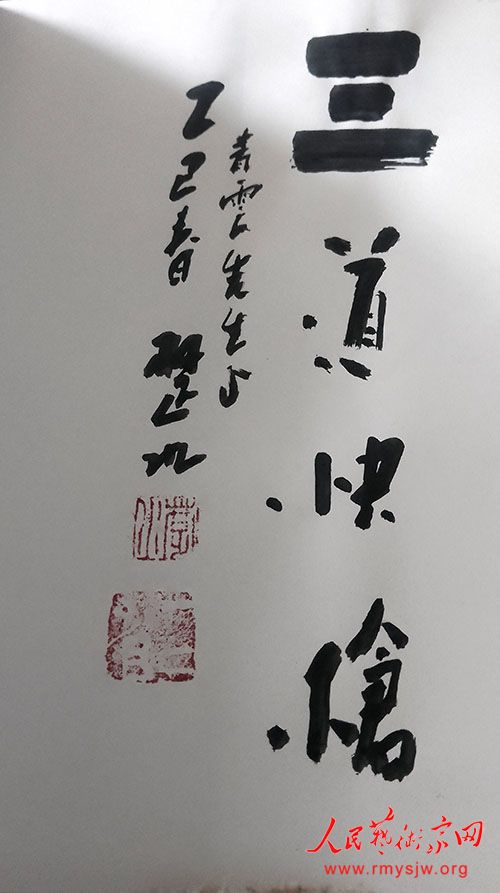 三道快槍
青雲先生
乙巳春
人民藝術家网
www.rmysjw.org